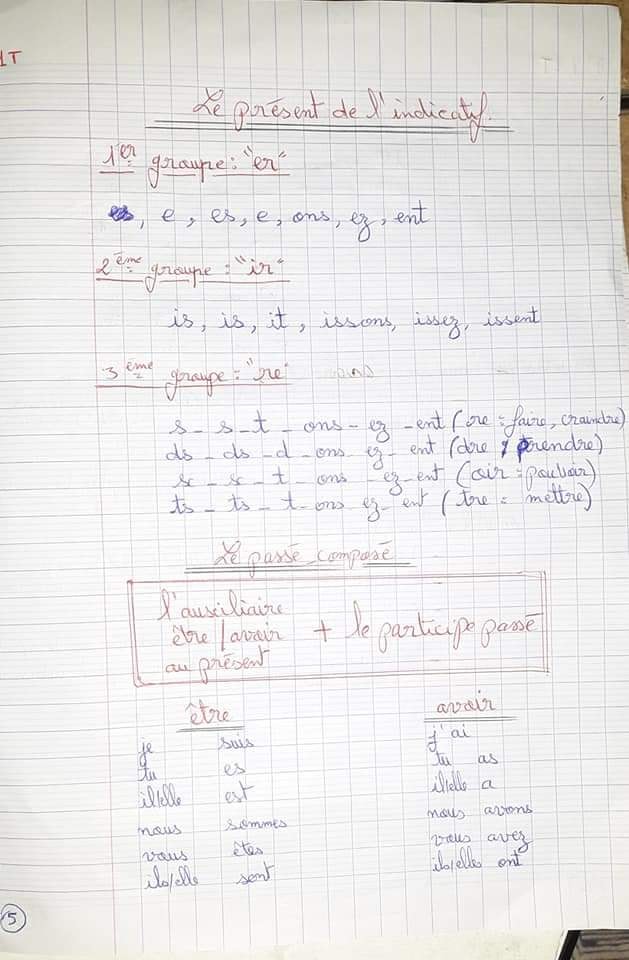 1T
Le présent de l'indicatif.
1er groupe : "er"
, e, es, e, ons, ez, ent
2ème groupe : "ir"
is, is, it, issons, issez, issent
3ème groupe : "re"
s - s - t - ons - ez - ent (re : faire, craindre)
ds - ds - d - ons ez - ent (dre : prendre)
x - x - t - ons - ez - ent (oir = pouvoir)
ts - ts - t - ons ez - ent (tre = mettre)
Le passé composé
l'auxiliaire
être / avoir + le participe passé
au présent
être avoir
je suis j'ai
tu es tu as
il/elle est il/elle a
nous sommes nous avons
vous êtes vous avez
ils/elle sont ils/elle ont
5